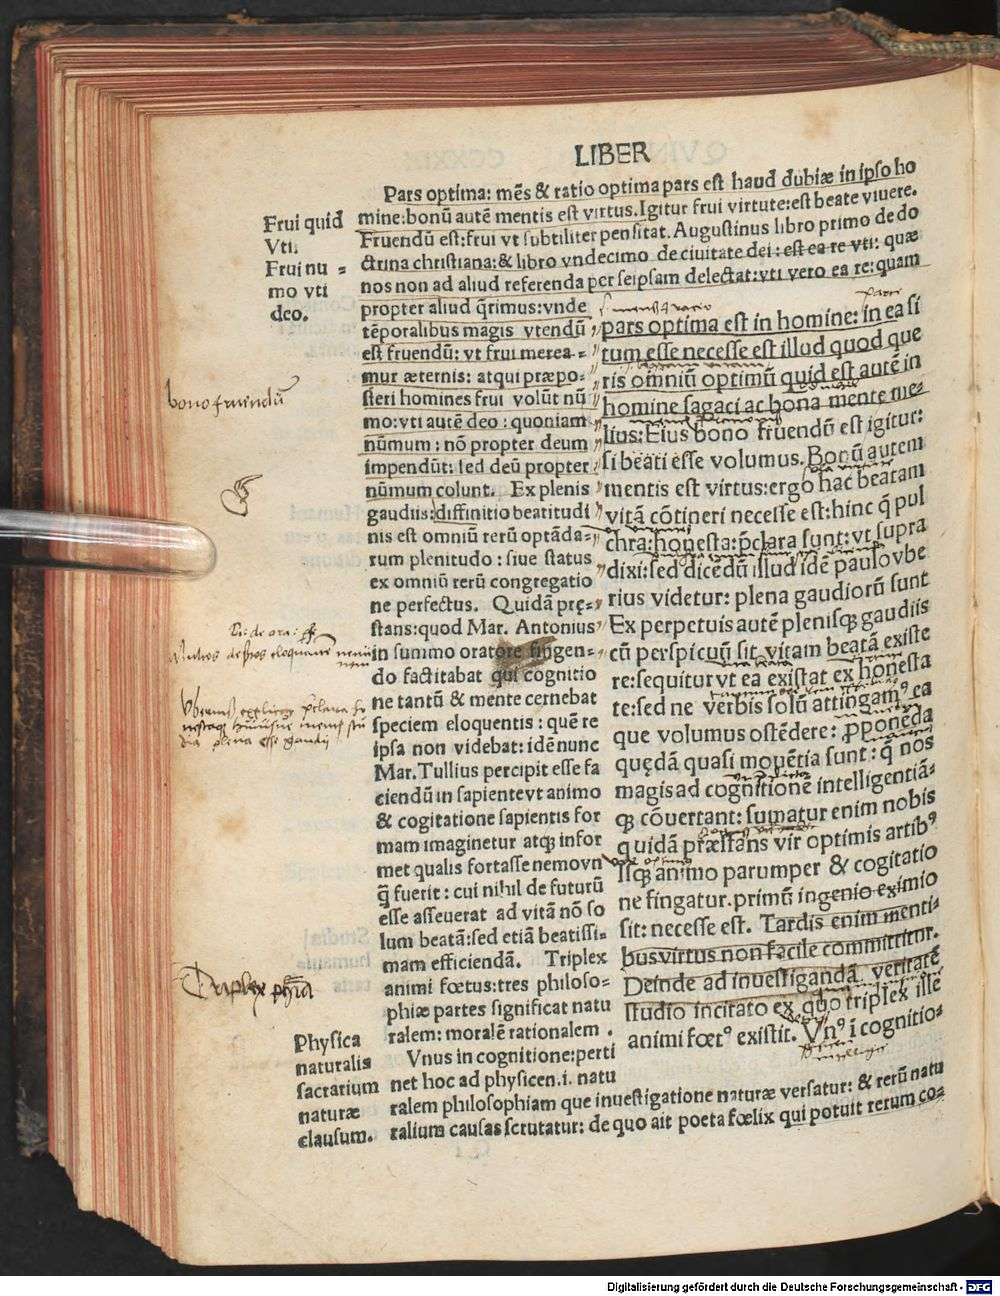 LIBER
Pars optima: mēs & ratio optima pars est haud dubiæ in ipso ho
mine: bonū autē mentis est virtus. Igitur frui virtute: est beate viuere.
Fruendū est: frui vt subtiliter pensitat. Augustinus libro primo de do
ctrina christiana: & libro vndecimo de ciuitate dei: est ea re vti: quæ
nos non ad aliud referenda per seipsam delectat: vti vero ea re: quam
propter aliud q̄rimus: vnde
tēporalibus magis vtendū
est fruendū: vt frui merea-
mur æternis: atqui præpo-
steri homines frui volūt nū
mo: vti autē deo: quoniam
nūmum: nō propter deum
impendūt: sed deū propter
nūmum colunt. Ex plenis
gaudiis: diffinitio beatitudi
nis est omniū rerū optāda-
rum plenitudo: siue status
ex omniū rerū congregatio
ne perfectus. Quidā prę-
stans: quod Mar. Antonius
in summo oratore fingen-
do factitabat qui cognitio
ne tantū & mente cernebat
speciem eloquentis: quē re
ipsa non videbat: idē nunc
Mar. Tullius percipit esse fa
ciendū in sapiente vt animo
& cogitatione sapientis for
mam imaginetur atq; infor
met qualis fortasse nemo vn
q̄ fuerit: cui nihil de futurū
esse asseuerat ad vitā nō so
lum beatā: sed etiā beatissi-
mam efficiendā. Triplex
animi fœtus: tres philoso-
phiæ partes significat natu
ralem: moralē rationalem.
Vnus in cognitione: perti
net hoc ad physicen .i. natu
ralem philosophiam que inuestigatione naturæ versatur: & rerū natu
ralium causas scrutatur: de quo ait poeta fœlix qui potuit rerum co-
pars optima est in homine: in ea si
tum esse necesse est illud quod que
ris omniū optimū quid est autē in
homine sagaci ac bona mente me-
lius: Eius bono fruendū est igitur:
si beati esse volumus. Bonū autem
mentis est virtus: ergo hac beatam
vitā cōtineri necesse est: hinc q̄ pul
chra: honesta: p̄clara sunt: vt supra
dixi: sed dicēdū illud idē paulo vbe
rius videtur: plena gaudiorū sunt
Ex perpetuis autē plenisq; gaudiis
cū perspicuū sit vitam beatā existe
re: sequitur vt ea existat ex honesta
te: sed ne verbis solū attingamꝰ ea
que volumus ostēdere: ꝓponēda
quędā quasi mouētia sunt: q̄ nos
magis ad cognitionē intelligentiā-
q; cōuertant: sumatur enim nobis
quidā præstans vir optimis artibꝰ
Isq; animo parumper & cogitatio
ne fingatur. primū ingenio eximio
sit: necesse est. Tardis enim menti-
bus virtus non facile committitur.
Deinde ad inuestigandā veritatē
studio incitato ex quo triplex ille
animi fœtꝰ existit. Vnꝰ ī cognitio-
Frui quid
Vti.
Frui nu-
mo vti
deo.
bono fruendū
Triplex phīa
Physica
naturalis
sacrarium
naturæ
clausum.
Digitalisierung gefördert durch die Deutsche Forschungsgemeinschaft - DFG